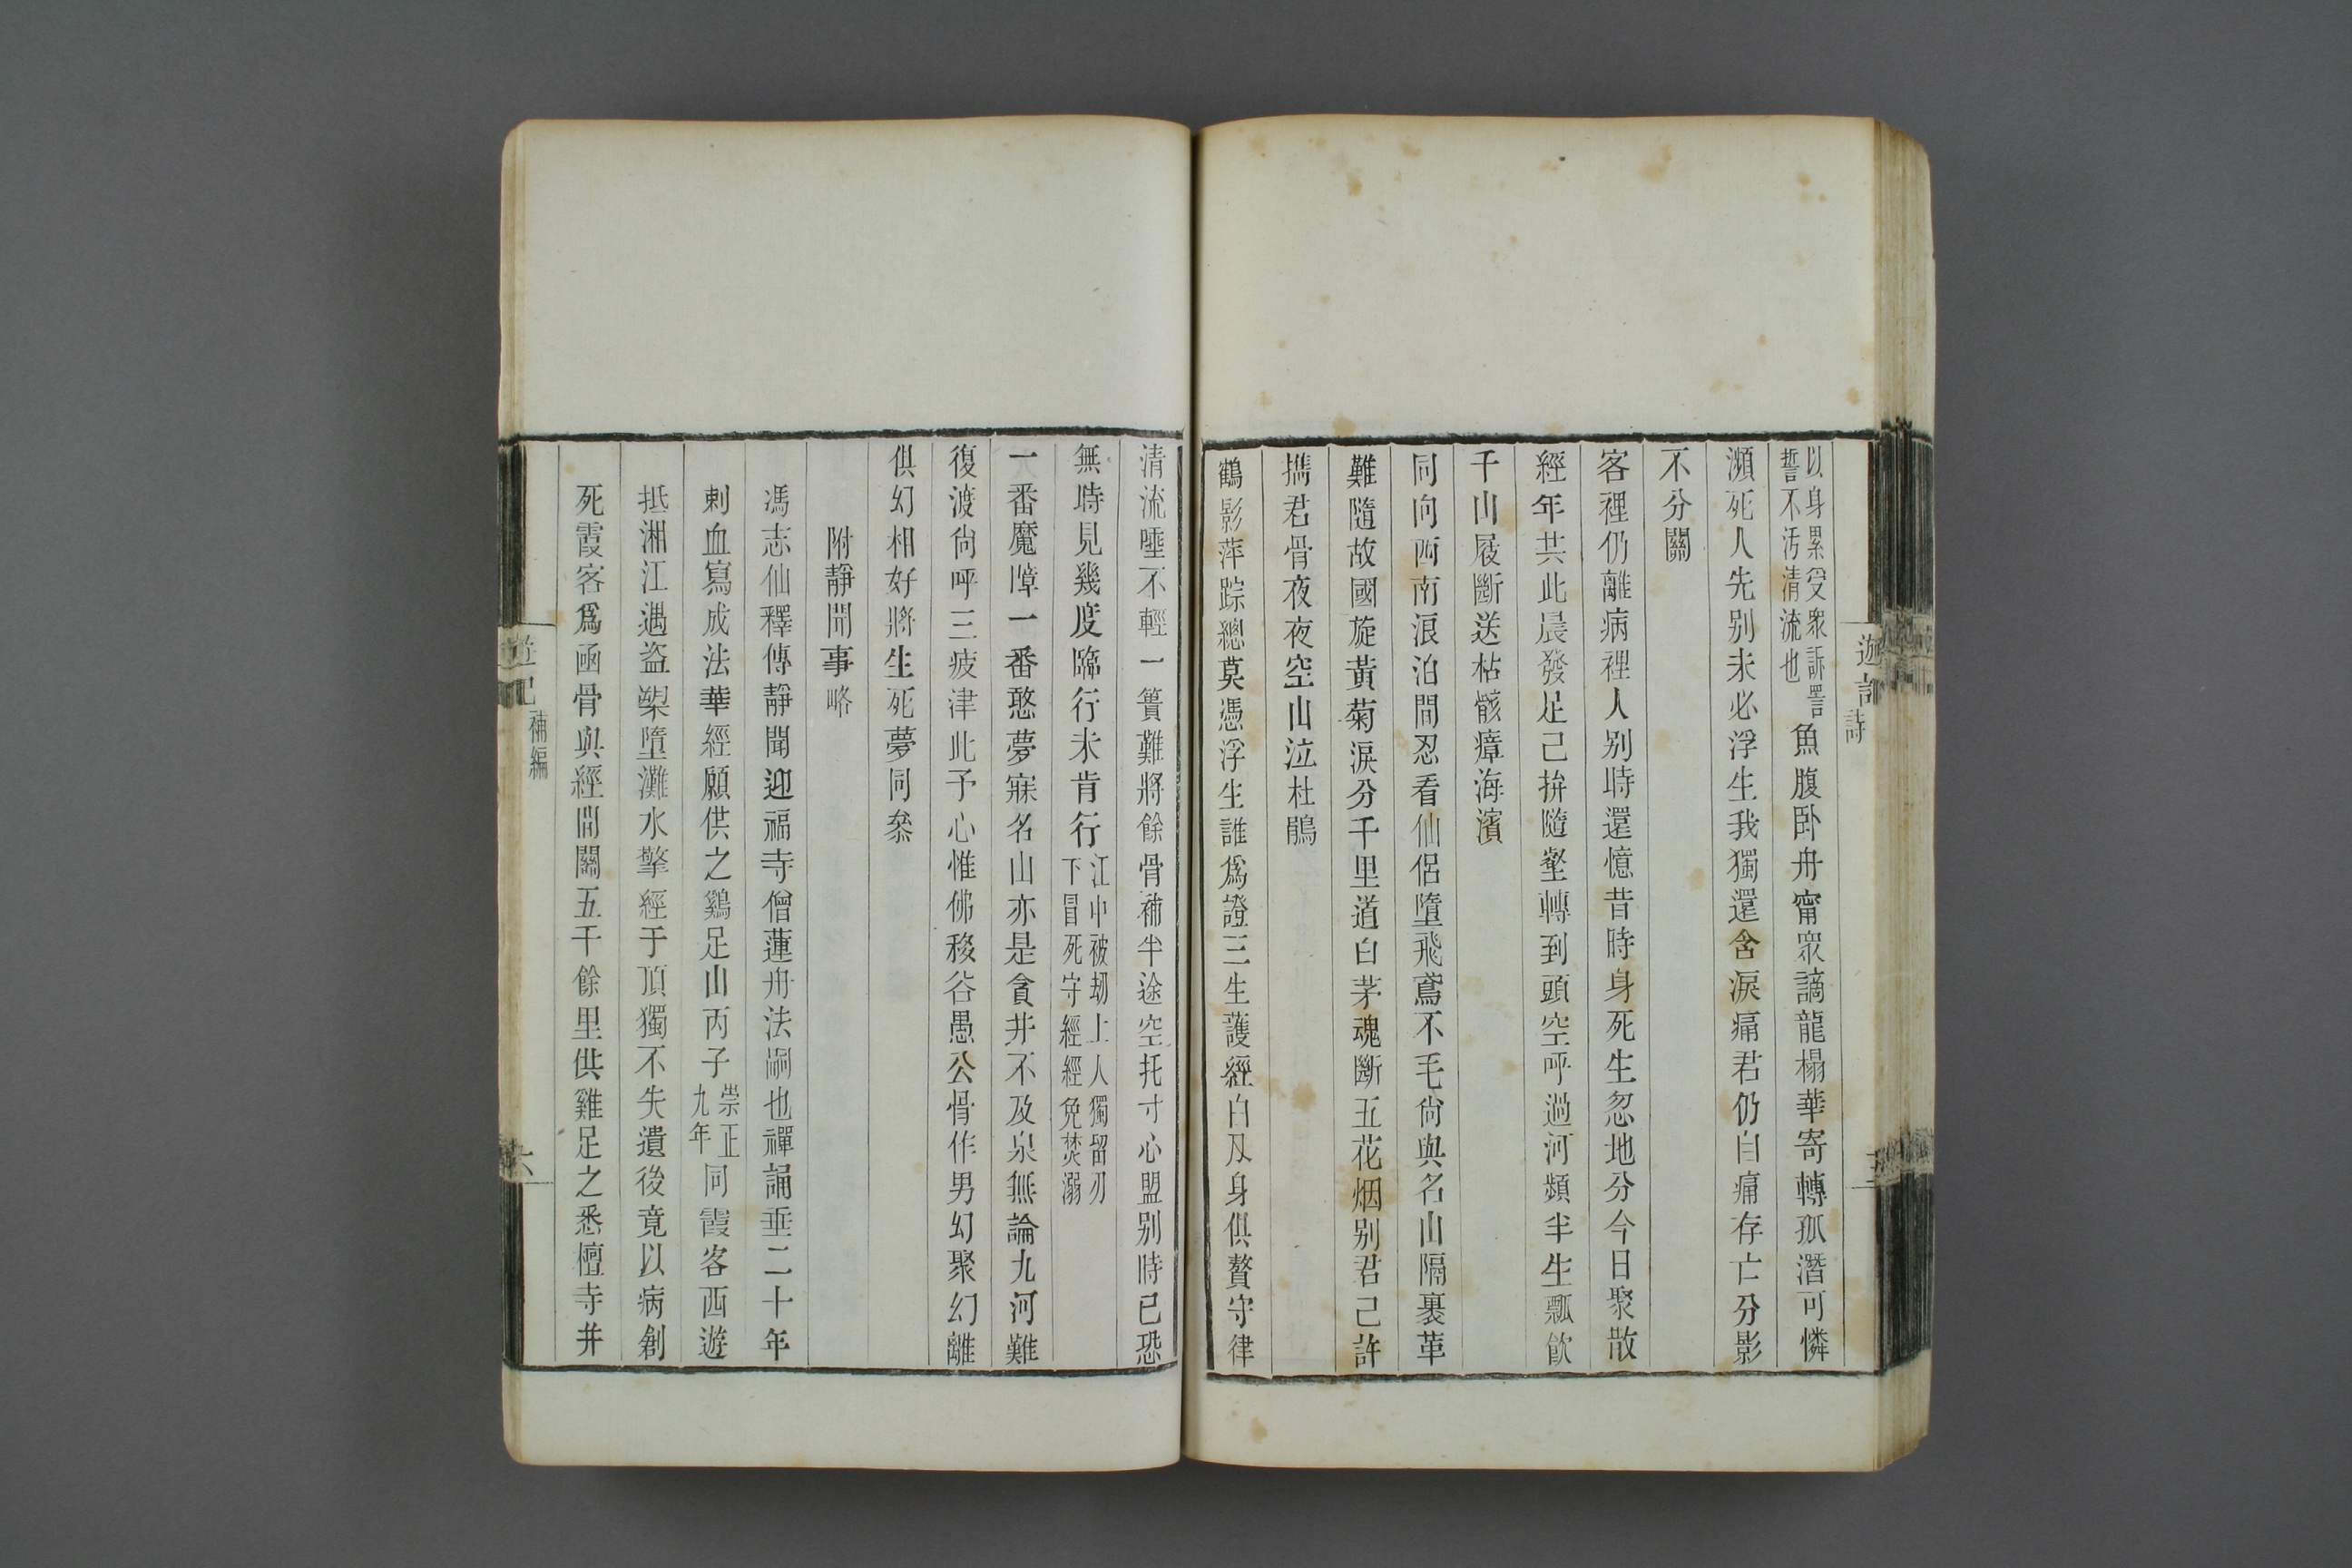 遊記詩
以身累受衆訴詈
誓不汚清流也
魚腹卧舟甯眾謫龍榻華寄轉孤潛可憐
瀕死人先别未必浮生我獨還含淚痛君仍自痛存亡分影
不分關
客裡仍離病裡人别時還憶昔時身死生忽地分今日聚散
經年共此晨發足已拚隨壑轉到頭空呼過河頻半生瓢飲
千山屐斷送枯骸瘴海濱
同向西南浪泊間忍看仙侣墮飛鳶不毛尙與名山隔裹革
難隨故國旋黃菊淚分千里道白茅魂斷五花烟别君已許
攜君骨夜夜空山泣杜鵑
鶴影萍踪總莫憑浮生誰爲證三生護經白刄身俱贅守律
清流唾不輕一簣難將餘骨補半途空托寸心盟别時已恐
無時見幾度臨行未肯行
江中被刼上人獨留刃
下冒死守經經免焚溺
一番魔障一番憨夢寐名山亦是貪井不及泉無論九河難
復渡尙呼三疲津此予心惟佛移谷愚公骨作男幻聚幻離
俱幻相好將生死夢同叅
附靜聞事略
馮志仙釋傳靜聞迎福寺僧蓮舟法嗣也禪誦垂二十年
刺血寫成法華經願供之鷄足山丙子
崇正
九年
同霞客西遊
抵湘江遇盜槊墮灘水擎經于頂獨不失遺後竟以病創
死霞客爲函骨與經間關五千餘里供雞足之悉檀寺并
遊記補編
六